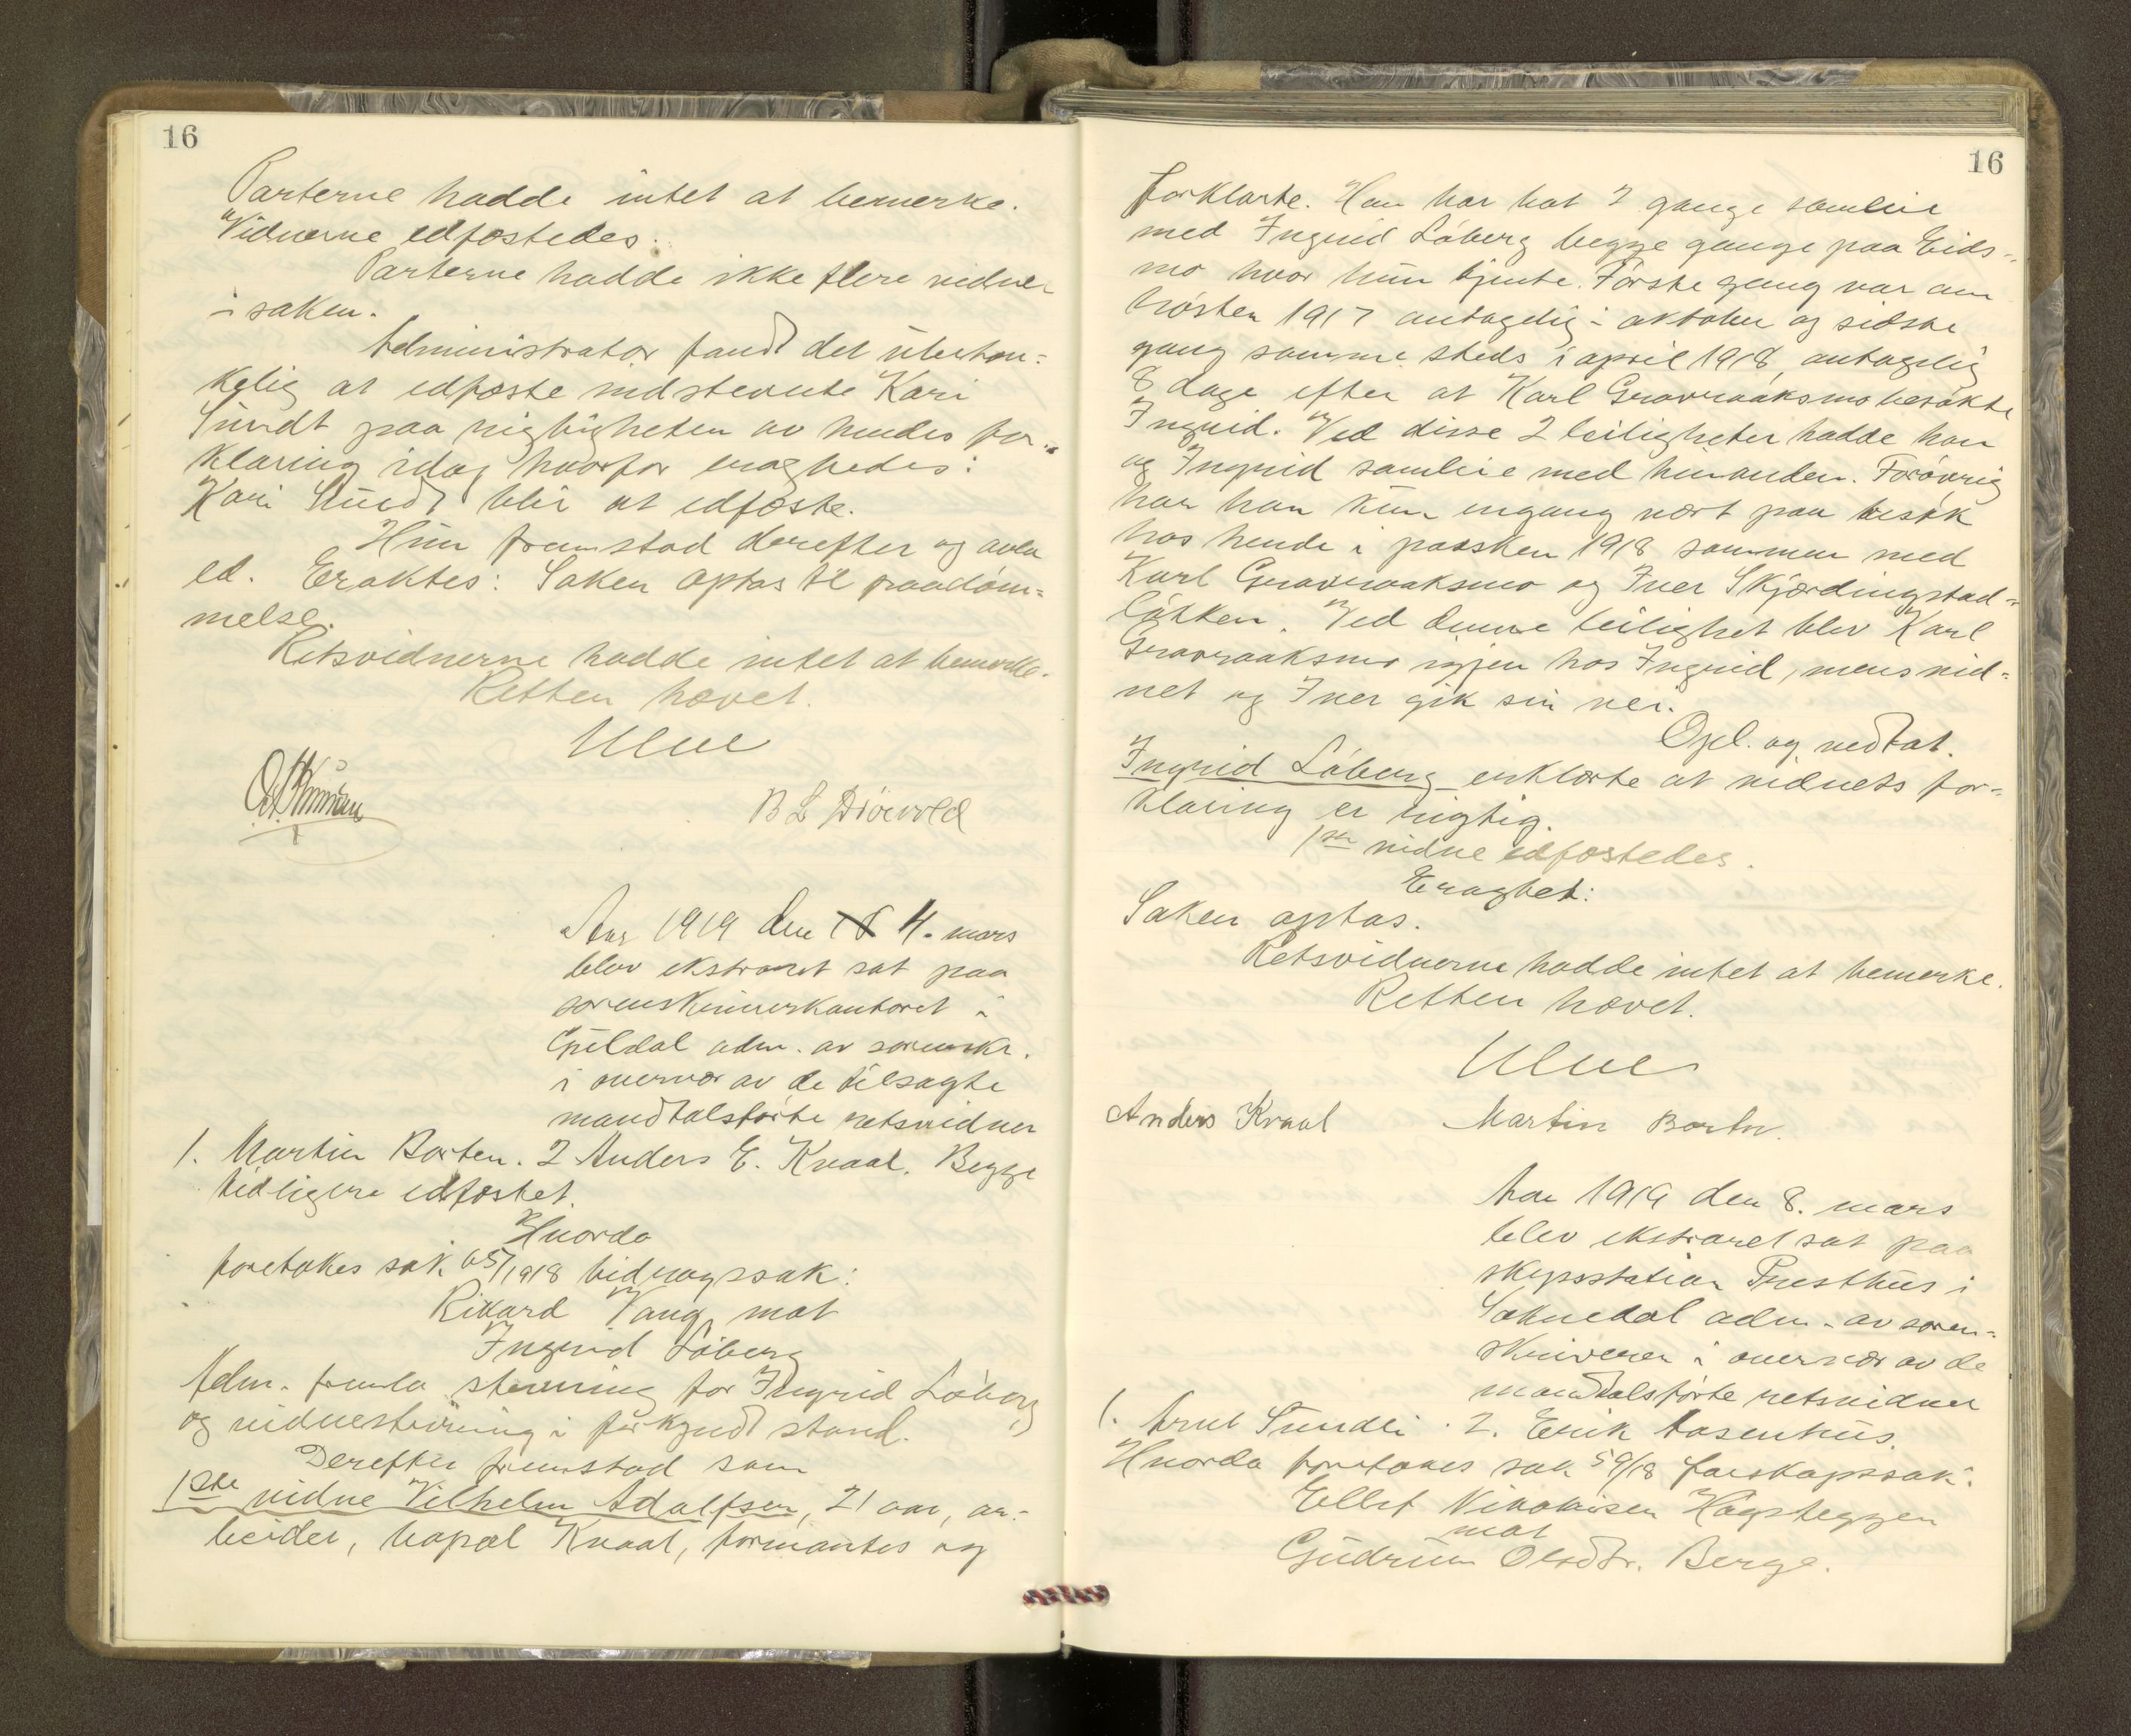 16
Parterne hadde intet at bemerke.
Vidnerne edfæstedes.
Parterne hadde ikke flere vidner
i saken.
Administrator fandt det ubetæn=
kelig at edfæste indstevnte Kari
Sundt paa rigtigheten av hendes for=
klaring idag hvorfor eragtedes:
Kari Sundt blir at edfæste.
Hun fremstod derefter og avla
ed. Eraktes: Saken optas til paadøm=
melse.
Retsvidnerne hadde intet at bemerke.
Retten hævet.
Ulve
B L Diørvold
Aar 1919 den 18 4. mars
blev ekstraret sat paa
sorenskriverkontoret i
Guldal adm. av sorenskr.
i overvær av de tilsagte
mandtalsførte retsvidner
1. Martin Borten. 2 Anders E. Kvaal. Begge
tidligere edfæstet.
Hvorda
foretokes sak 65/1918 bidragssak:
Rikard Vang mot
Ingrid Løberg
Adm. fremla stevning for Ingrid Løberg
og vidnestevning i forkyndt stand.
Derefter fremstod som
1ste vidne Vilhelm Adolfsen, 21 aar, ar=
beider, bopæl Kvaal, formantes og
16
forklarte. Han har hat 2 gange samleie
med Ingrid Løberg begge gange paa Eids=
mo hvor hun tjente. Første gang var om
høsten 1917 antagelig i oktober og sidste
gang samme steds i april 1918, antagelig
8 dage efter at Karl Gravraaksmo besøkte
Ingrid. Ved disse 2 leiligheter hadde han
og Ingrid samleie med hinanden. Forøvrig
har han kun engang vært paa besøk
hos hende i paasken 1918 sammen med
Karl Gravraaksmo og Iver Skjærdingstad=
løkken. Ved denne leilighet blev Karl
Gravraaksmo igjen hos Ingrid, mens vid=
net og Iver gik sin vei.
Opl. og vedtat.
Ingrid Løberg erklærte at vidnets for=
klaring er rigtig.
1ste vidne edfæstedes.
Eragtet:
Saken optas.
Retsvidnerne hadde intet at bemerke.
Retten hævet.
Ulve
Anders Kvaal Martin Borten.
Aar 1919 den 8. mars
blev ekstraret sat paa
skysstation Presthus i
Soknedal adm. av soren=
skriveren i overvær av de
mandtalsførte retsvidner
1. Arnt Sundli. 2. Erik Aasenhus.
Hvorda foretokes sak 59/18 farskapssak:
Ellef Nikolaisen Hagsteggen
mot
Gudrun Olsdtr. Berge.